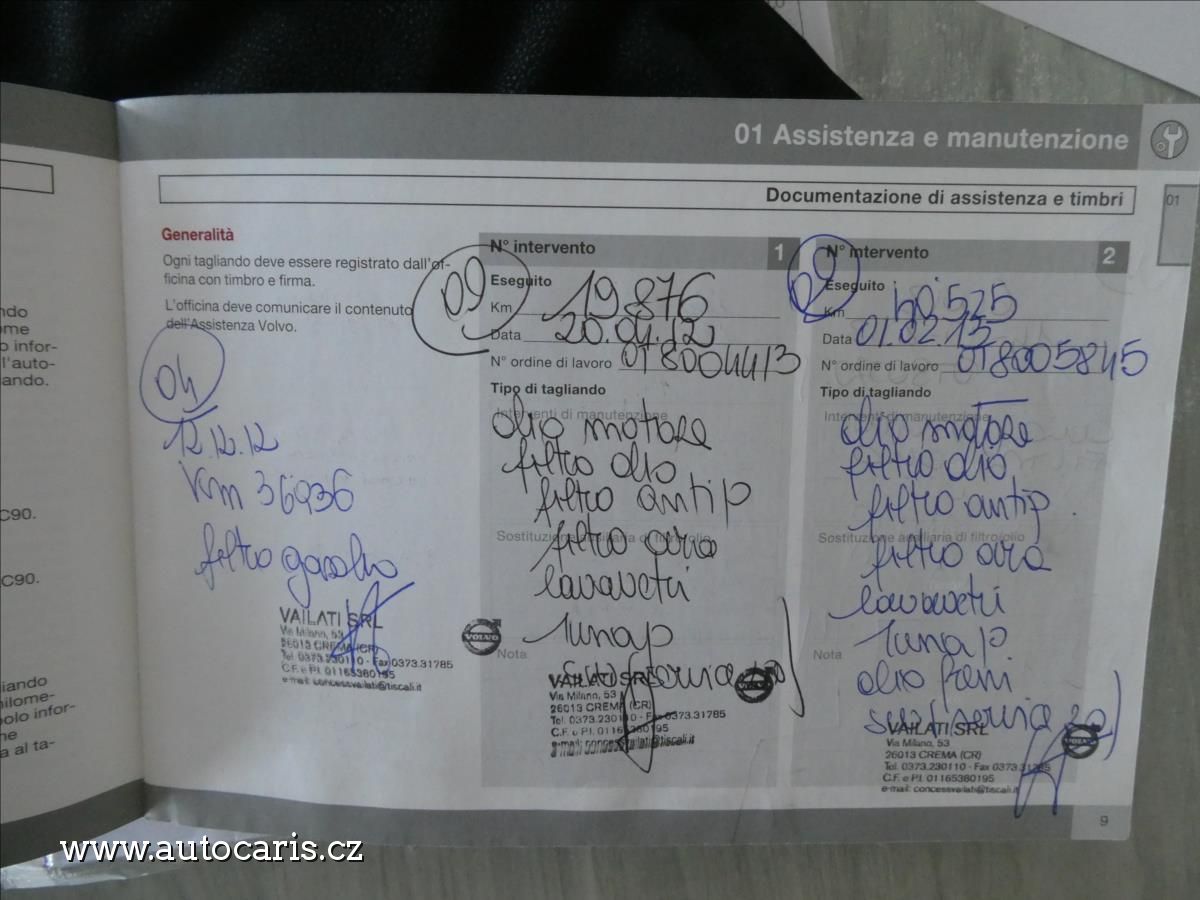 01 Assistenza e manutenzione
Documentazione di assistenza e timbri
01
Generalità
Ogni tagliando deve essere registrato dall'of-
ficina con timbro e firma.
L'officina deve comunicare il contenuto
dell'Assistenza Volvo.
04
12.12.12
Km 36936
filtro gasolio
VAILATI SRL
Via Milano, 53
26013 CREMA (CR)
Tel. 0373.230110 - Fax 0373.31785
C.F. e P.I. 01165380195
e-mail: concessvailati@tiscali.it
VOLVO
N° intervento 1
09
Eseguito
Km 19876
Data 20.04.12
N° ordine di lavoro 018004413
Tipo di tagliando
Interventi di manutenzione
olio motore
filtro olio
filtro antip
Sostituzione ausiliaria di filtro/olio
filtro aria
lavavetri
Nota
VAILATI SRL
Via Milano, 53
26013 CREMA (CR)
Tel. 0373.230110 - Fax 0373.31785
C.F. e P.I. 01165380195
e-mail: concessvailati@tiscali.it
VOLVO
N° intervento 2
09
Eseguito
Km
Data 01.02.13
N° ordine di lavoro 018005845
Tipo di tagliando
Interventi di manutenzione
olio motore
filtro olio
filtro antip.
Sostituzione ausiliaria di filtro/olio
filtro aria
lavavetri
Nota
olio freni
VAILATI SRL
Via Milano, 53
26013 CREMA (CR)
Tel. 0373.230110 - Fax 0373.31785
C.F. e P.I. 01165380195
e-mail: concessvailati@tiscali.it
VOLVO
9
ndo
ome
o infor-
l'auto-
ando.
C90.
C90.
iando
hilome-
olo infor-
ne
a al ta-
www.autocaris.cz